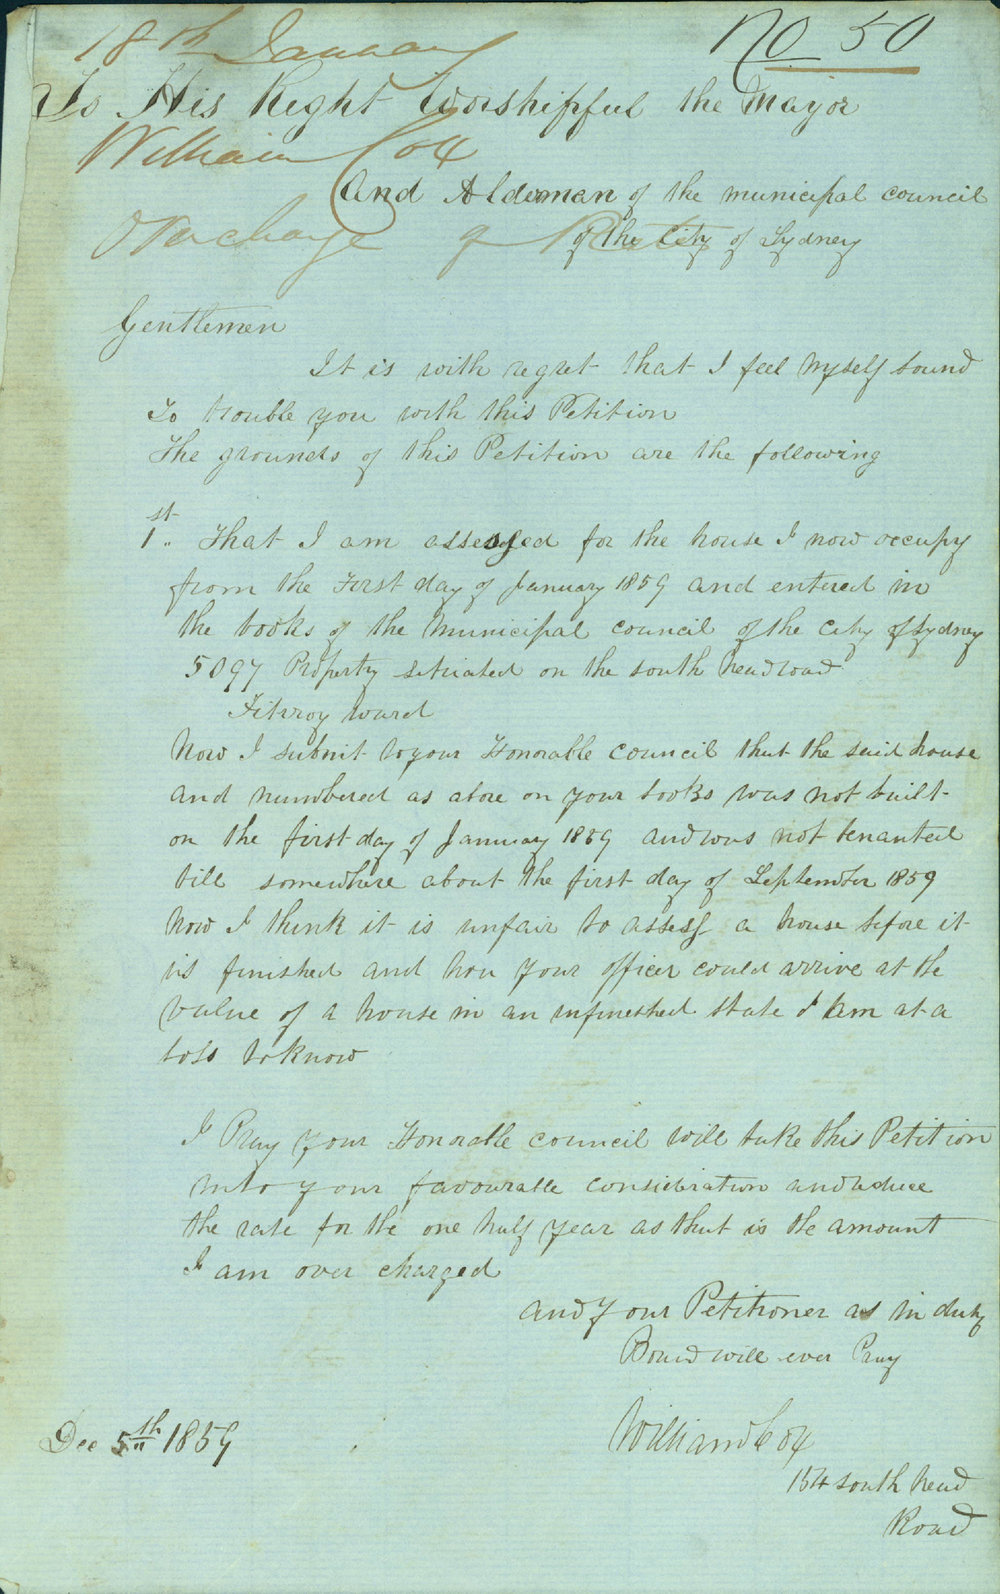 18th January
No 50
To His Right Worshipful the Mayor
William Cox
And Aldeman of the municipal council
Overcharge of Rates
of the City of Sydney
Gentlemen
It is with regret that I feel Myself bound
to trouble you with this Petition
The grounds of this Petition are the following
1st. That I am assessed for the house I now occupy
from the First day of January 1859 and entered in
the books of the Municipal council of the City of Sydney
5097 Property situated on the south head road
Fitzroy ward
Now I submit to your Honorable council that the said house
and numbered as above on your books was not built
on the first day of January 1859 and was not tenanted
till somewhere about the first day of September 1859
Now I think it is unfair to assess a house before it
is finished and how your officer could arrive at the
value of a house in an unfineshed state I am at a
loss to know
I Pray your Honorable council will take this Petition
into your favourable consideration and reduce
the rate for the one half year as that is the amount
I am over charged
and your Petitioner as in duty
Bound will ever Pray
Dec 5th 1859
William Cox
154 south head
Road